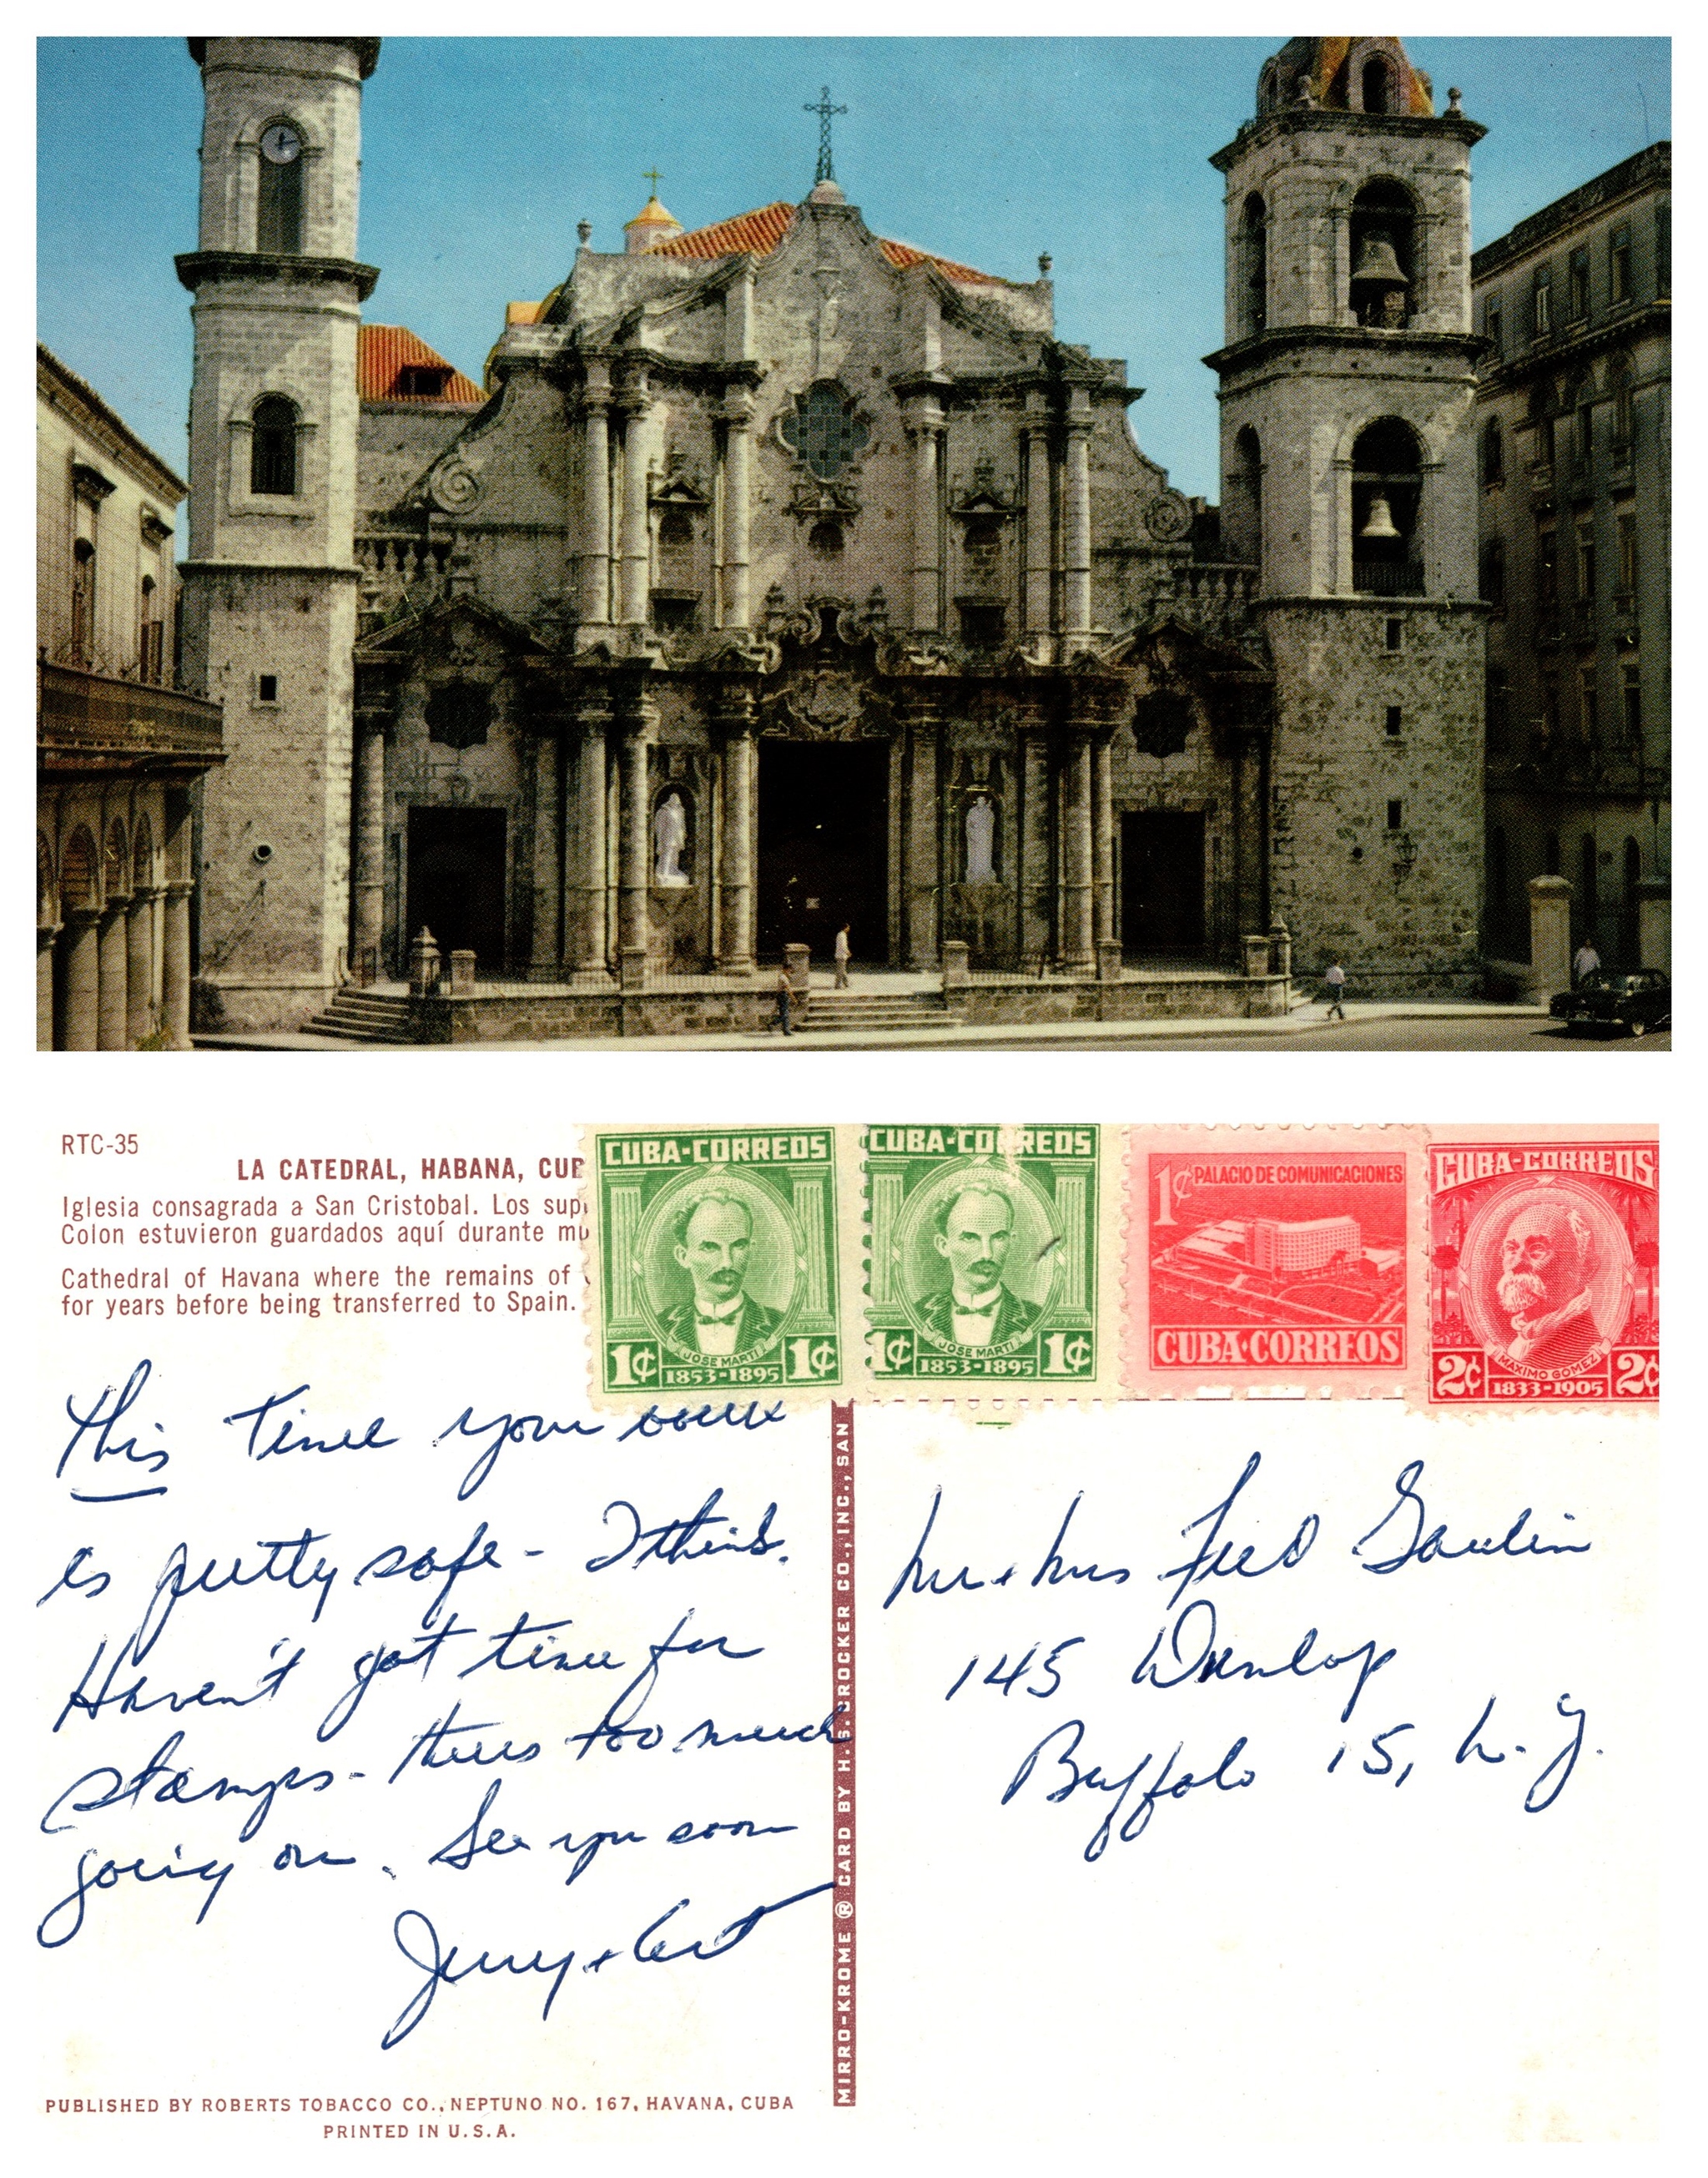 RTC-35
LA CATEDRAL, HABANA, CUB
Iglesia consagrada a San Cristobal. Los sup
Colon estuvieron guardados aquí durante mu
Cathedral of Havana where the remains of
for years before being transferred to Spain.
CUBA-CORREOS
JOSE MARTI
1¢ 1853-1895 1¢
CUBA-CORREOS
JOSE MARTI
1¢ 1853-1895 1¢
1¢ PALACIO DE COMUNICACIONES
CUBA·CORREOS
CUBA-CORREOS
MAXIMO GOMEZ
2¢ 1833-1905 2¢
This time your
is pretty safe - I think.
Haven't got time for
stamps - theres too much
going on. See you soon
Jerry + Art
Mr + Mrs Fred Gaulin
145 Dunlop
Buffalo 15, N.Y.
MIRRO-KROME ® CARD BY H.S. CROCKER CO., INC., SAN
PUBLISHED BY ROBERTS TOBACCO CO., NEPTUNO NO. 167, HAVANA, CUBA
PRINTED IN U.S.A.